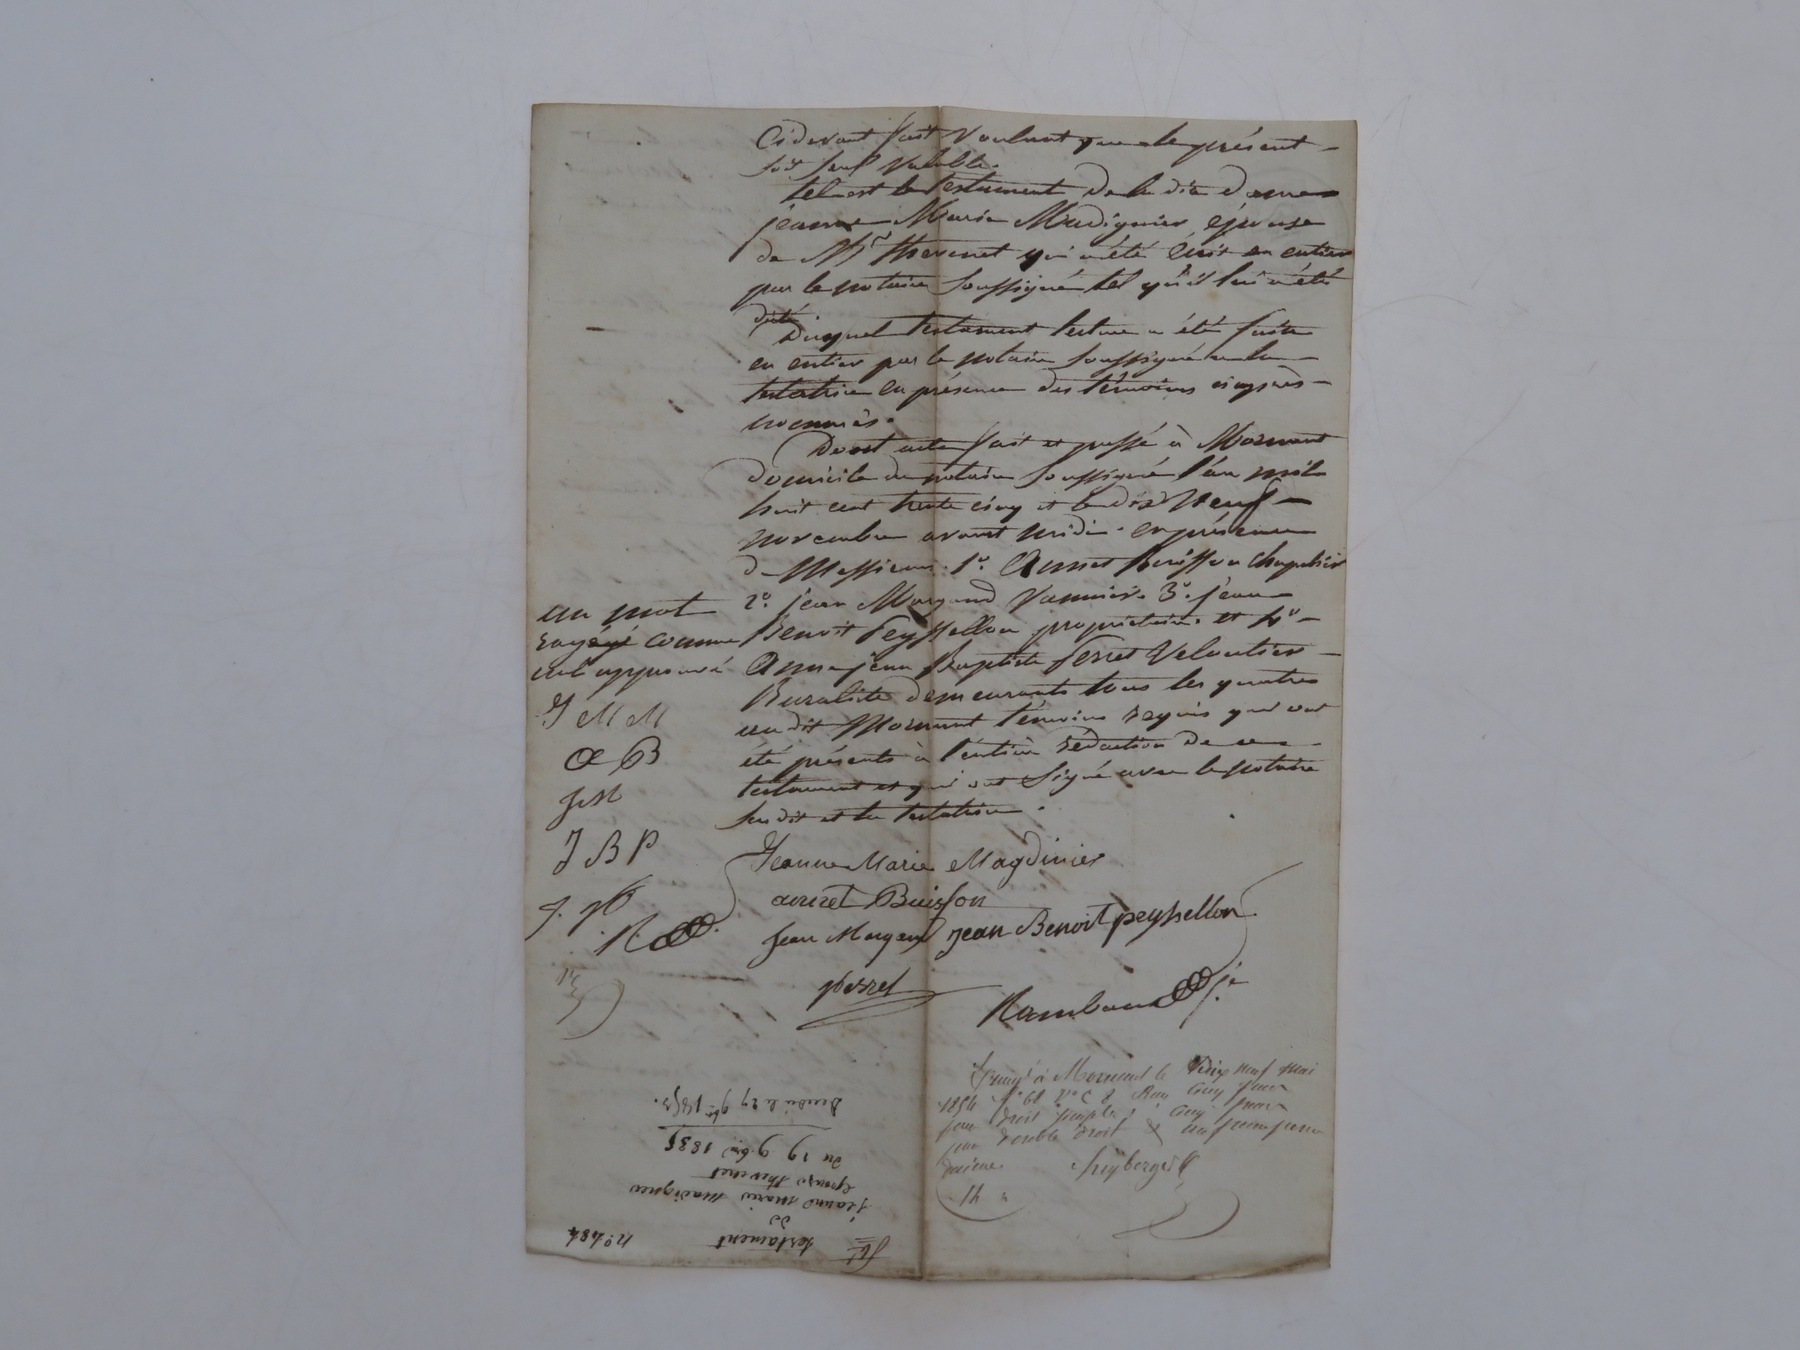 Cidevant fait voulant que le présent
soit seul valable.
tel est le testament de la dite dame
jeanne Marie Madignier épouse
de Mr thevenet qui a été écrit en entier
par le notaire soussigné tel qu'il lui a été
dicté
Duquel testament lecture a été faite
en entier par le notaire soussigné a la
testatrice en présence des témoins cy après
nommés.
Dont acte fait et passé à Mornant
domicile du notaire soussigné l'an mil
huit cent trente cinq et le dix neuf
novembre avant midi. en présence
de Messieurs. 1o. Annet Buisson Chapelier
2o. jean Margand Vannier. 3o. jean
Benoit Peyssellon propriétaire et 4o
jean Baptiste Perret Veloutier
Buraliste demeurants tous les quatres
au dit Mornant témoins requis qui ont
été présents à l'entière rédaction de ce
testament et qui ont signé avec le notaire
susdit et la testatrice.
un mot
rayé comme
nul approuvé
J M M
A B
J M
J B P
J. P
R
Jeanne Marie Magdinier
annet Buisson
Jean Margand jean Benoit peyssellon
perret
Rambaud
à Mornant le dix neuf mai
1854 fo 68 Ro Cinq francs
pour droit simple, cinq francs
pour double droit & un franc pour
décime
14
no. 484
testament
de
jeanne marie madignier
épouse thevenet
du 19 9.bre 1835